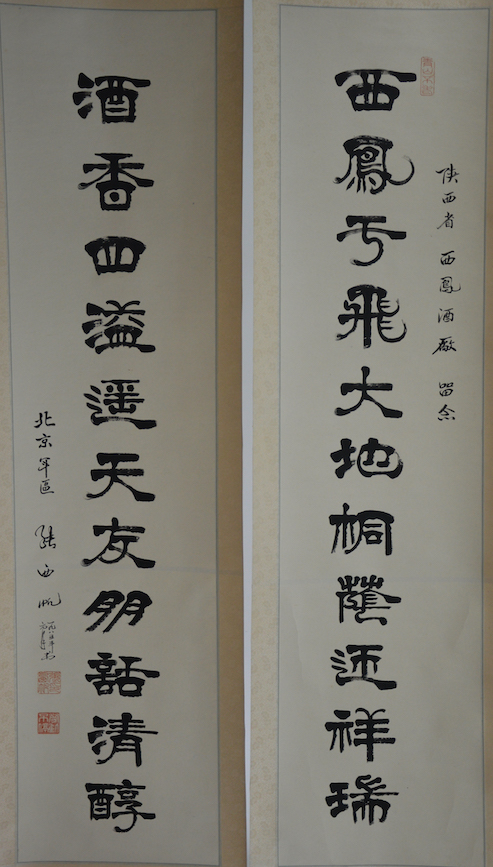 陕西省 西鳳酒廠 留念
西鳳于飛大地桐蔭迎祥瑞
酒香四溢遥天友朋話清醇
北京军區 張西帆